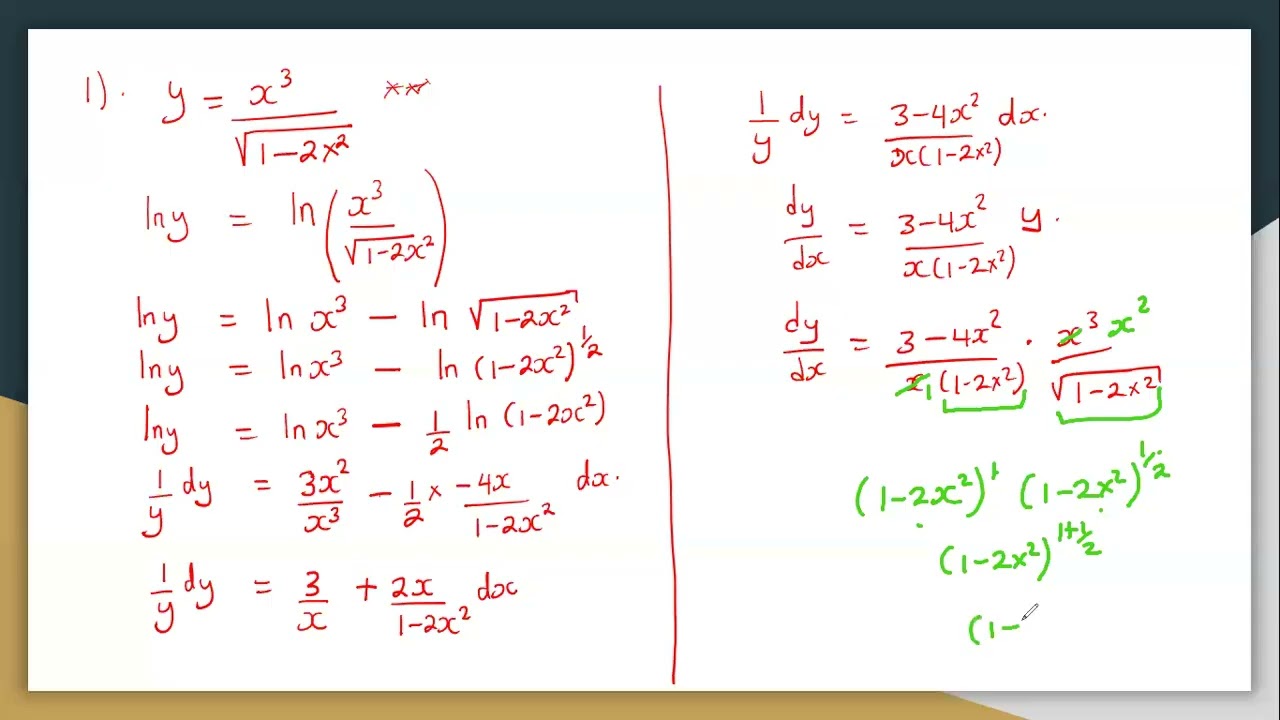 1). y = x³ / √(1−2x²) **
ln y = ln( x³ / √(1−2x²) )
ln y = ln x³ − ln √(1−2x²)
ln y = ln x³ − ln (1−2x²)^½
ln y = ln x³ − 1/2 ln (1−2x²)
1/y dy = 3x²/x³ − 1/2 × −4x/(1−2x²) dx.
1/y dy = 3/x + 2x/(1−2x²) dx
1/y dy = (3−4x²) / x(1−2x²) dx.
dy/dx = (3−4x²) / x(1−2x²) y.
dy/dx = (3−4x²) / x 1 (1−2x²) · x³ x² / √(1−2x²)
(1−2x²)^1 (1−2x²)^½
(1−2x²)^(1+½)
(1−